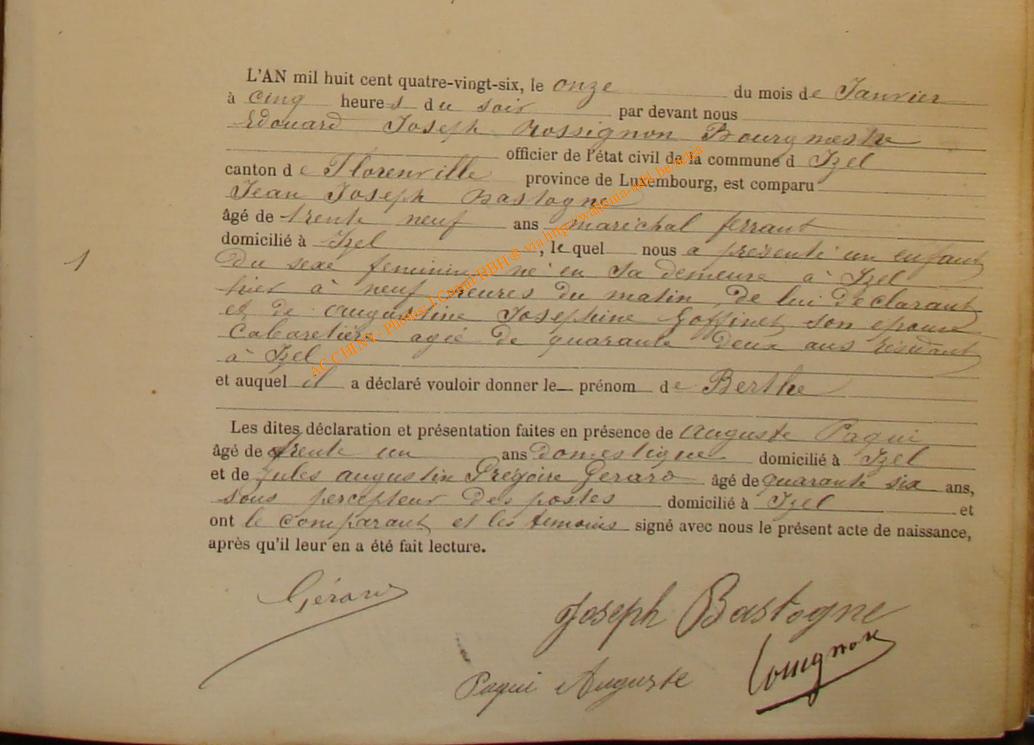 L'AN mil huit cent quatre-vingt-six, le onze du mois de Janvier
à cinq heures du soir par devant nous
Edouard Joseph Rossignon Bourgmestre
officier de l'état civil de la commune d Izel
canton de Florenville province de Luxembourg, est comparu
Jean Joseph Bastogne
âgé de trente neuf ans marèchal ferrant
domicilié à Izel, lequel nous a présenté un enfant
1
du sexe feminin né en sa demeure à Izel
hier à neuf heures du matin, de lui déclarant
et de Augustine Josephine Goffinet son epouse
Cabaretière agée de quarante deux ans résidant
à Izel
et auquel il a déclaré vouloir donner le prénom de Berthe
Les dites déclaration et présentation faites en présence de Auguste Paqui
âgé de trente un ans domestique domicilié à Izel
et de Jules Augustin Grégoire Gerard âgé de quarante six ans,
sous percepteur des postes domicilié à Izel et
ont le comparant et les temoins signé avec nous le présent acte de naissance,
après qu'il leur en a été fait lecture.
Gérard
Joseph Bastogne
Paqui Auguste